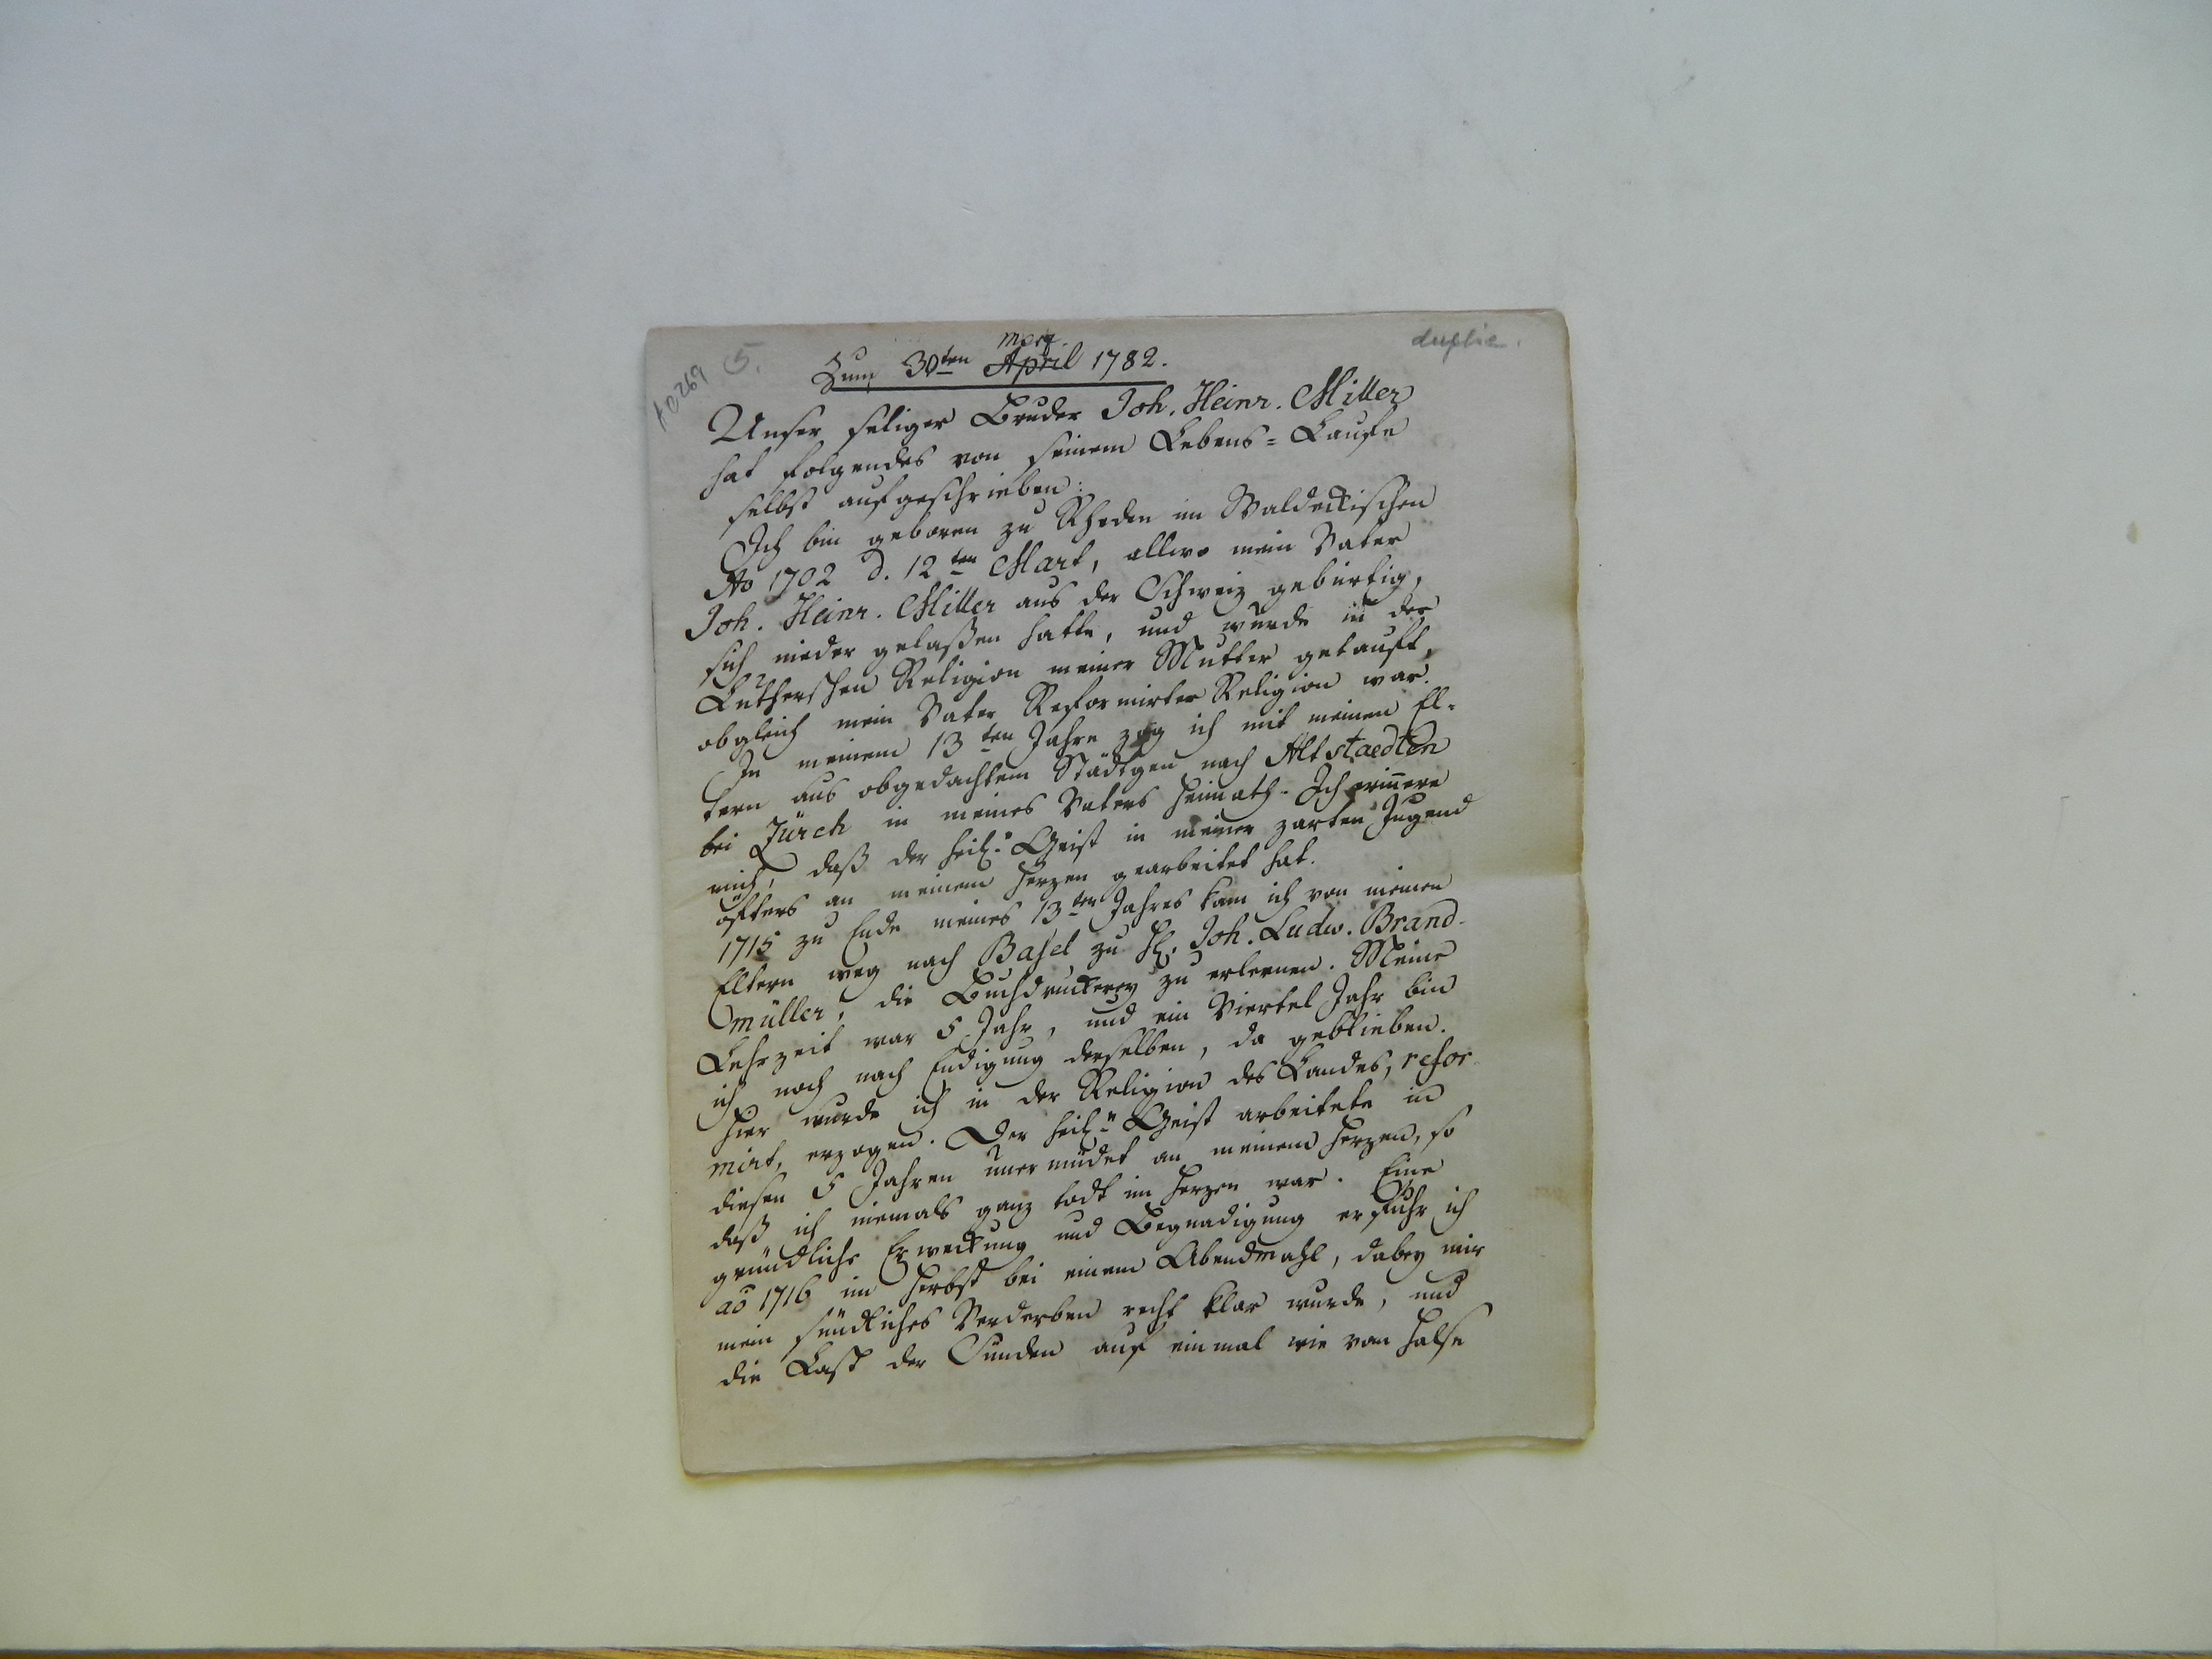 10269 5.
duplic.
März
Zum 30ten April 1782.
Unser seliger Bruder Joh. Heinr. Miller
hat folgendes von seinem Lebens=Laufe
selbst aufgeschrieben:
Ich bin geboren zu Rheden im Waldeckischen
Ao 1702 d. 12ten Mart, allwo mein Vater
Joh. Heinr. Miller aus der Schweiz gebürtig,
sich nieder gelaßen hatte, und wurde in der
Lutherschen Religion meiner Mutter getauft,
obgleich mein Vater Reformirter Religion war.
In meinem 13ten Jahre zog ich mit meinen El-
tern aus obgedachtem Städtgen nach Altstaedten
bei Zürch in meines Vaters Heimath. Ich erin̄ere
mich, daß der heil. Geist in meiner zarten Jugend
öfters an meinem Herzen gearbeitet hat.
1715 zu Ende meines 13ten Jahres kam ich von meinen
Eltern weg nach Basel zu H. Joh. Ludw. Brand-
müller, die Buchdruckerey zu erlernen. Meine
Lehrzeit war 5 Jahr, und ein Viertel Jahr bin
ich noch nach Endigung derselben, da geblieben.
Hier wurde ich in der Religion des Landes, refor-
mirt, erzogen. Der heil. Geist arbeitete in
diesen 5 Jahren unermüdet an meinem Herzen, so
daß ich niemals ganz todt im Herzen war. Eine
gründliche Erweckung und Begnadigung erfuhr ich
ao 1716 im Herbst bei einem Abendmahl, dabey mir
mein sündliches Verderben recht klar wurde, und
die Last der Sünden auf einmal wie vom Halse